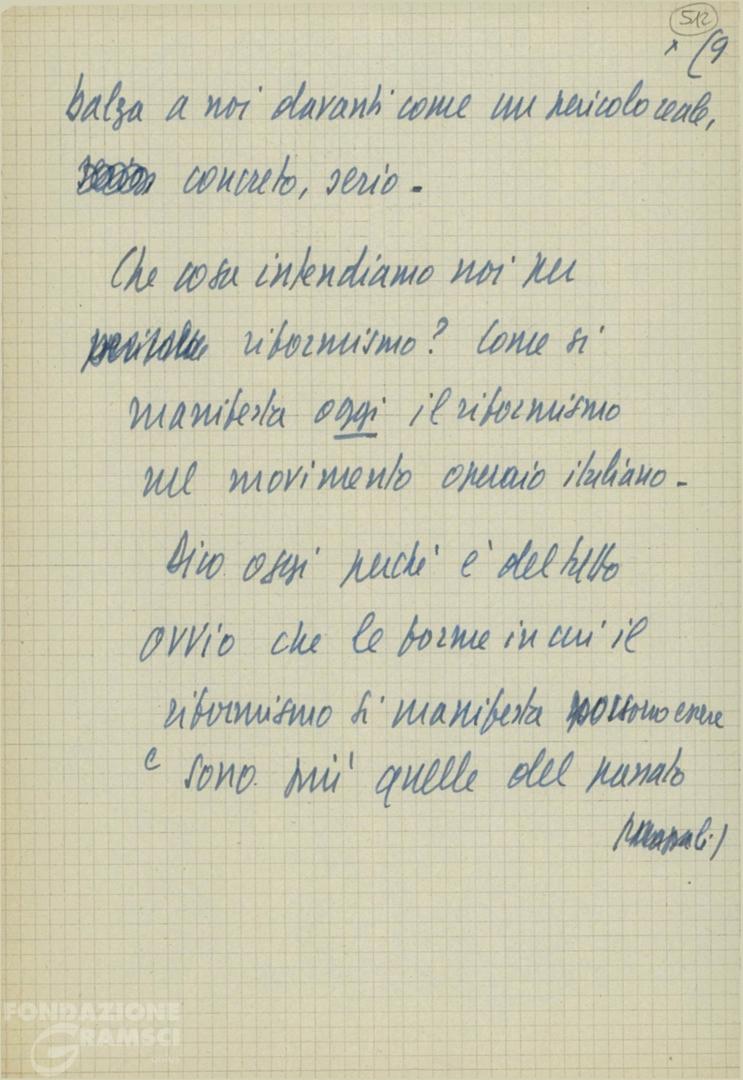 512
x (9
balza a noi davanti come un pericolo reale,
concreto, serio -
Che cosa intendiamo noi per
riformismo? Come si
manifesta oggi il riformismo
nel movimento operaio italiano -
Dico oggi perché è del tutto
ovvio che le forme in cui il
riformismo si manifesta possono essere
e sono più quelle del passato
FONDAZIONE
GRAMSCI